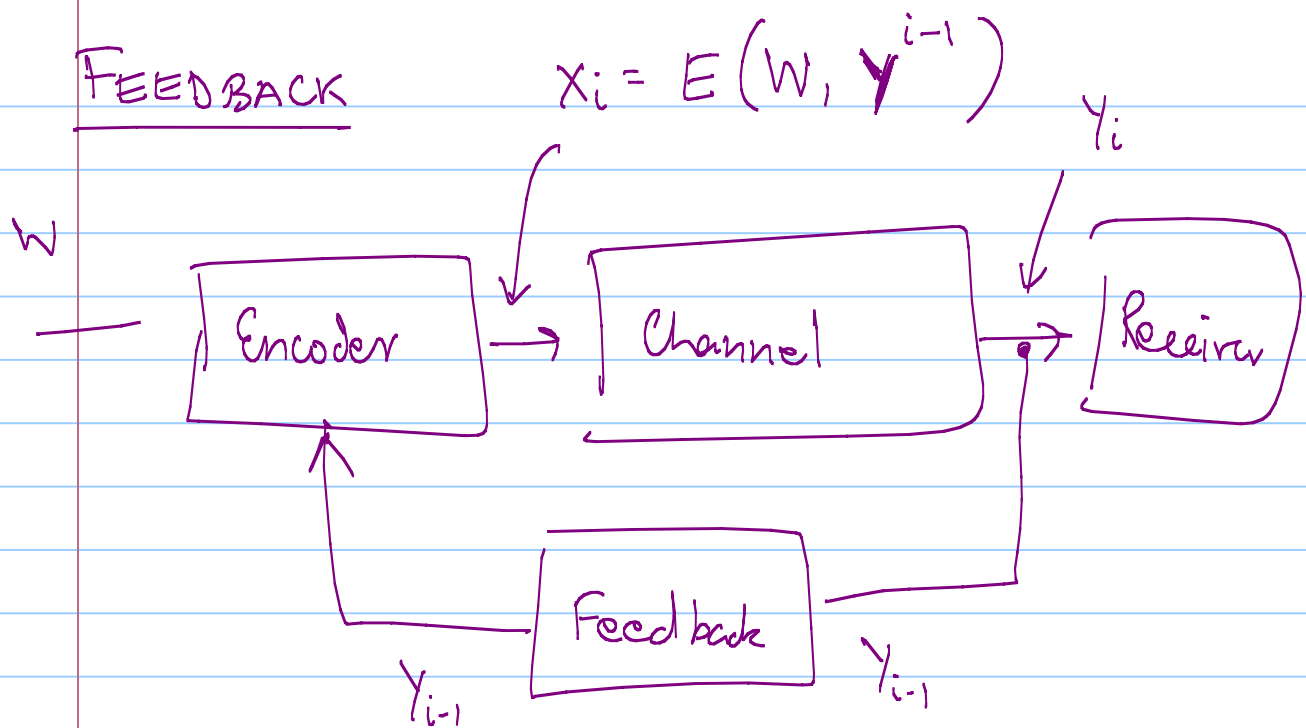 FEEDBACK
Xᵢ = E(W, Yⁱ⁻¹)
Yᵢ
W
Encoder
Channel
Receiver
Feedback
Yᵢ₋₁
Yᵢ₋₁